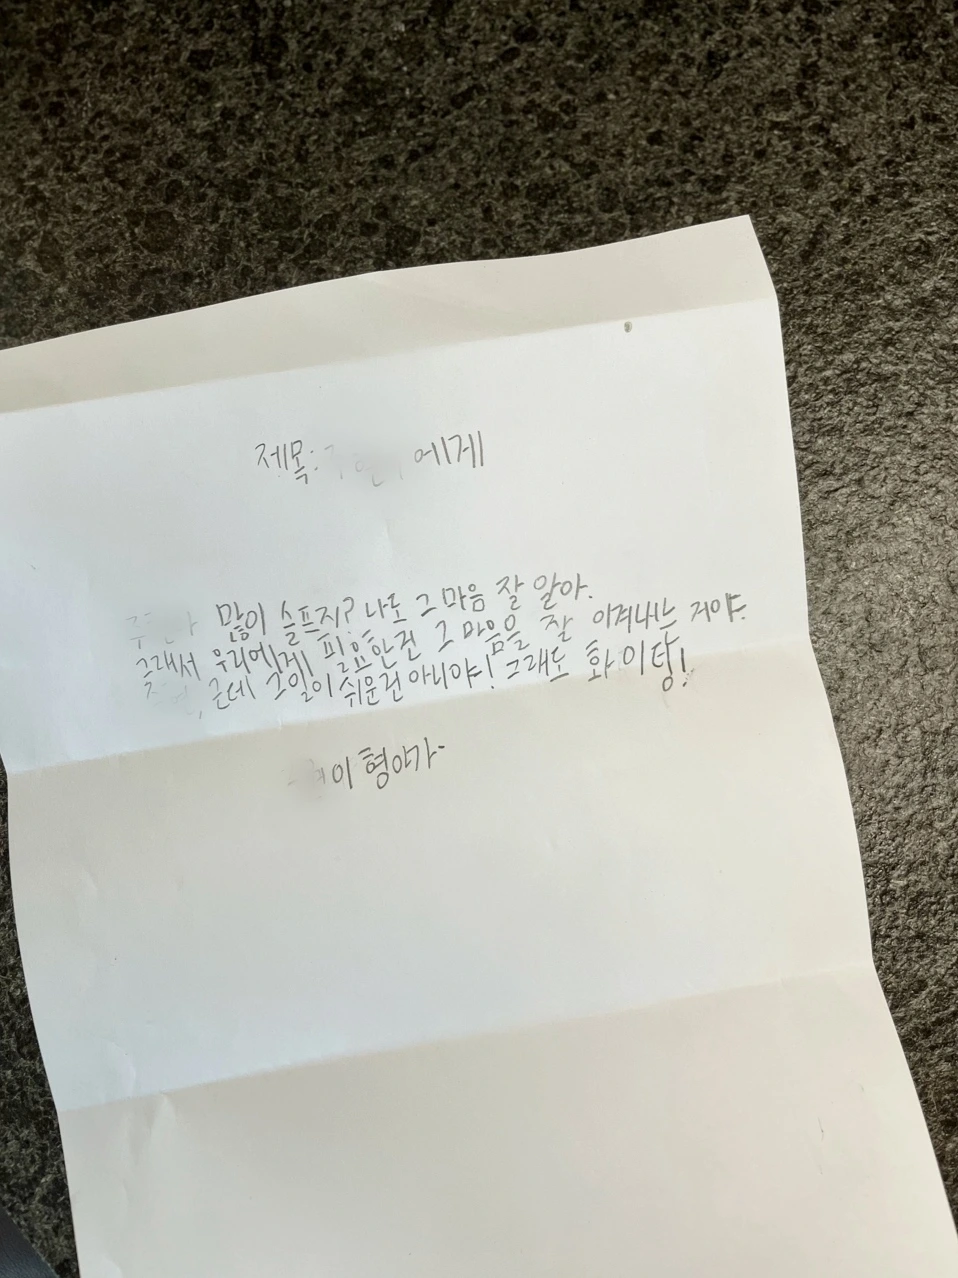 제목: 에게
많이 슬프지? 나도 그 마음 잘 알아.
그래서 우리에게 필요한건 그 마음을 잘 이겨내는 거야.
근데 그일이 쉬운건 아니야! 그래도 화이탕!
이 형아가